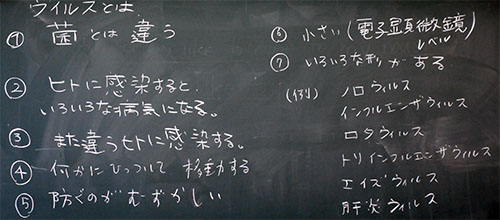 ウイルスとは
① 菌とは違う
② ヒトに感染すると、
いろいろな病気になる。
③ また違うヒトに感染する。
④ 何かにひっついて移動する
⑤ 防ぐのがむずかしい
⑥ 小さい(電子顕微鏡)
レベル
⑦ いろいろな形がある
(例) ノロウィルス
インフルエンザウィルス
ロタウィルス
トリインフルエンザウィルス
エイズウィルス
肝炎ウィルス